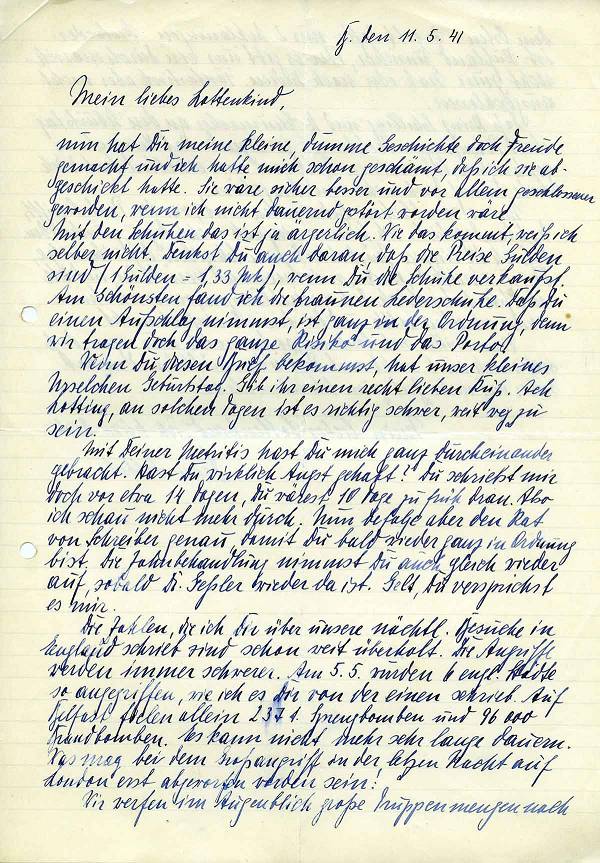 den 11. 5. 41
Mein liebes Lottenkind,
nun hat Dir meine kleine, dumme Geschichte doch Freude
gemacht und ich hatte mich schon geschämt, daß ich sie ab-
geschickt hatte. Sie wäre sicher besser und vor allem geschlossener
geworden, wenn ich nicht dauernd gestört worden wäre.
Mit den Schuhen das ist ja ärgerlich. Wie das kommt, weiß ich
selber nicht. Denkst Du auch daran, daß die Preise Gulden
sind (1 Gulden = 1,33 Mk), wenn Du die Schuhe verkaufst.
Am Schönsten fand ich die braunen Lederschuhe. Daß Du
einen Aufschlag nimmst, ist ganz in der Ordnung, denn
wir tragen doch das ganze Risiko und das Porto.
Wenn Du diesen Brief bekommst, hat unser kleines
Geburtstag. Gib ihr einen recht lieben Kuß. Ach
Lotting, an solchen Tagen ist es richtig schwer, weit weg zu
sein.
Mit Deiner Metritis hast Du mich ganz durcheinander
gebracht. Hast Du wirklich Angst gehabt? Du schriebst mir
doch vor etwa 14 Tagen, Du wärest 10 Tage zu früh dran. Also
ich schau nicht mehr durch. Nun befolge aber den Rat
von Schreiber genau, damit Du bald wieder ganz in Ordnung
bist. Die Zahnbehandlung nimmst Du auch gleich wieder
auf, sobald Dr. Geßler wieder da ist. Gelt, Du versprichst
es mir.
Die Zahlen, die ich Dir über unsere nächtl. Besuche in
England schrieb sind schon weit überholt. Die Angriffe
werden immer schwerer. Am 5.5. wurden 6 engl. Städte
so angegriffen, wie ich es Dir von der einen schrieb. Auf
Belfast fielen allein 237 t. Sprengbomben und 96 000
Brandbomben. Es kann nicht mehr sehr lange dauern.
Was mag bei dem Großangriff in der letzen Nacht auf
London erst abgeworfen worden sein!
Wir werfen im Augenblick große Truppenmengen nach